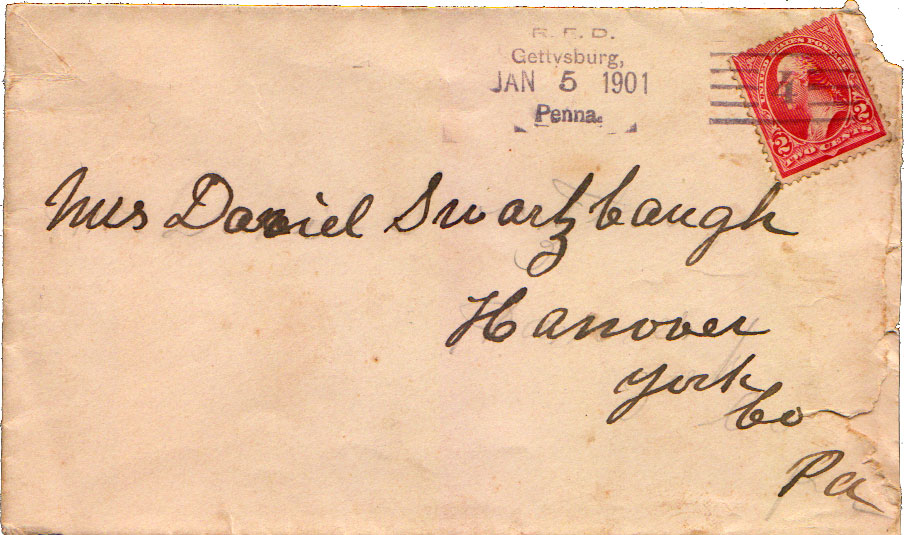 R. F. D.
Gettysburg,
JAN 5 1901
Penna.
4
UNITED STATES POSTAGE
2 TWO CENTS 2
Mrs Daniel Swartzbaugh
Hanover
York
Co
Pa